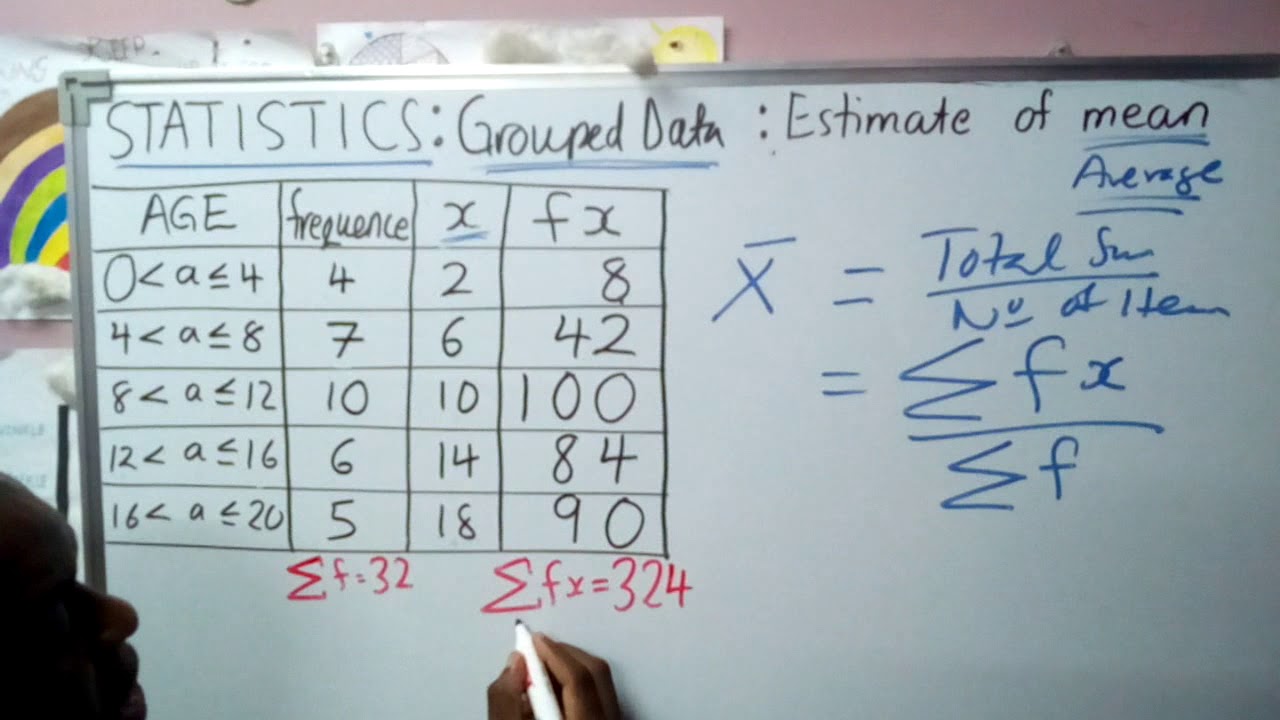 STATISTICS: Grouped Data : Estimate of mean
Average
AGE frequence x fx
0 < a ≤ 4 4 2 8
4 < a ≤ 8 7 6 42
8 < a ≤ 12 10 10 100
12 < a ≤ 16 6 14 84
16 < a ≤ 20 5 18 90
∑f=32 ∑fx=324
X̄ = Total Sum
No of Item
= ∑fx
∑f